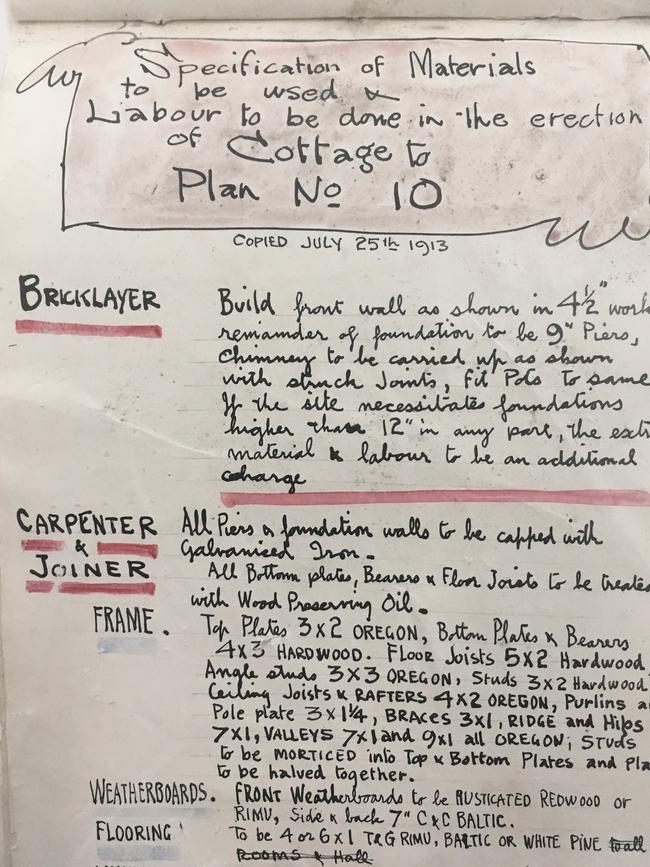 Specification of Materials
to be used &
Labour to be done in the erection
of Cottage to
Plan No 10
COPIED JULY 25th 1913
BRICKLAYER
Build front wall as shown in 4½" work
remainder of foundation to be 9" Piers,
Chimney to be carried up as shown
with struck Joints, fit Pots to same
If the site necessitates foundations
higher than 12" in any part, the ext
material & labour to be an additional
charge
CARPENTER
&
JOINER
All Piers & foundation walls to be capped with
Galvanised Iron.
All Bottom plates, Bearers & Floor Joists to be treate
with Wood Preserving Oil.
FRAME.
Top Plates 3x2 OREGON, Bottom Plates & Bearers
4x3 HARDWOOD. FLOOR JOISTS 5x2 Hardwood
Angle studs 3x3 OREGON, Studs 3x2 Hardwood
Ceiling Joists & RAFTERS 4x2 OREGON, Purlins a
Pole plate 3x1¼, BRACES 3x1, RIDGE and Hips
7x1, VALLEYS 7x1 and 9x1 all OREGON; STUDS
to be MORTICED into Top & Bottom Plates and Pla
to be halved together.
WEATHERBOARDS.
FRONT Weatherboards to be RUSTICATED REDWOOD or
RIMU, Side & back 7" C&C BALTIC.
FLOORING
To be 4 or 6x1 T&G RIMU, BALTIC OR WHITE PINE to all
ROOMS & Hall